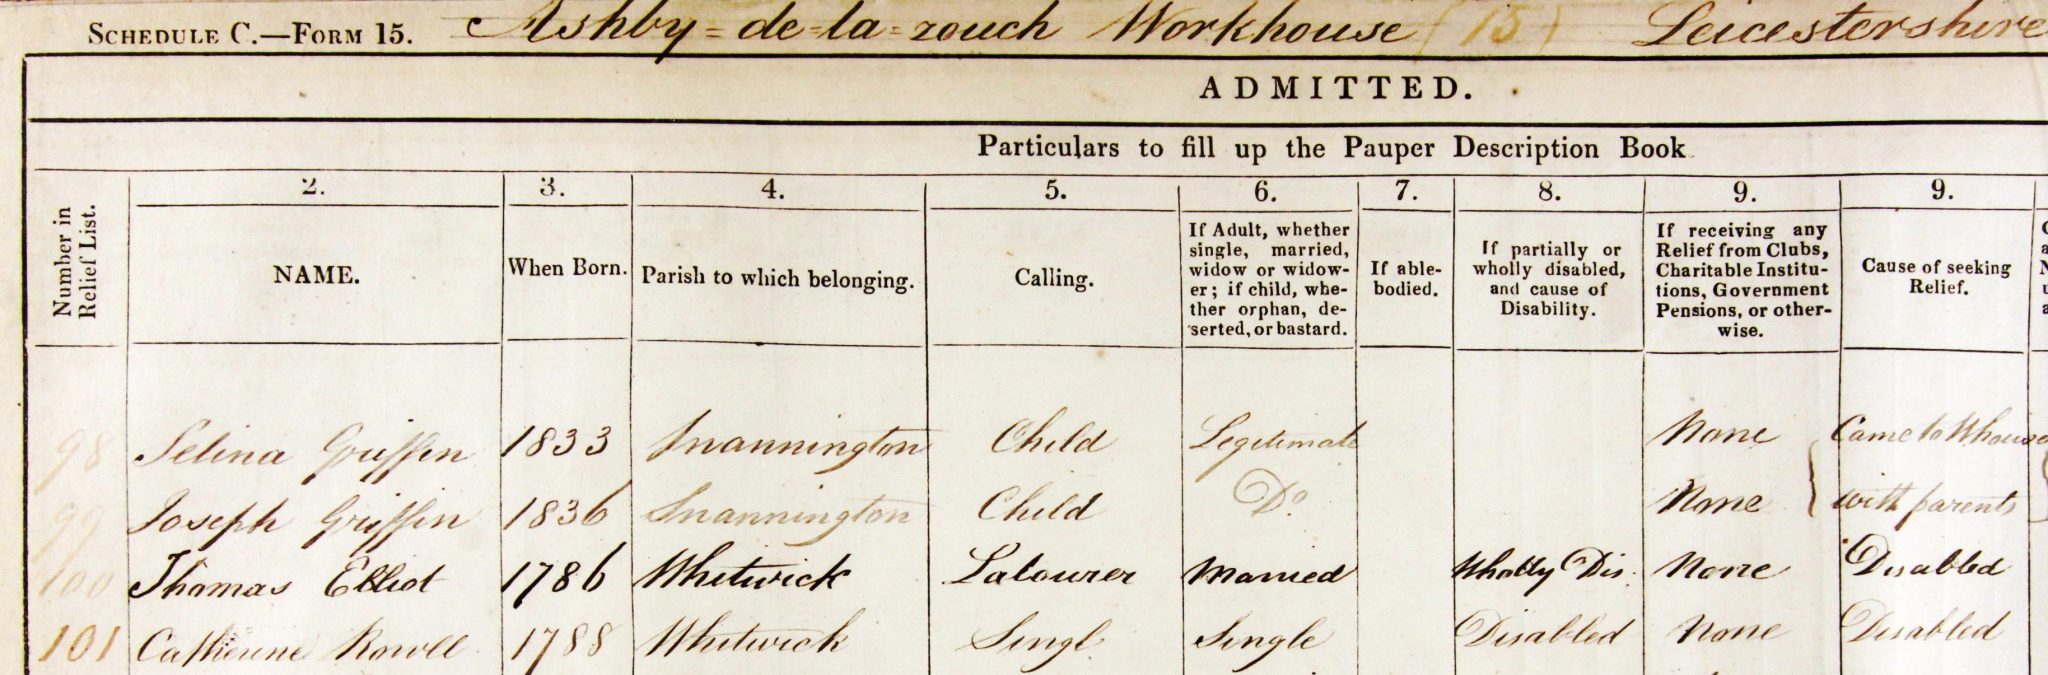 SCHEDULE C.—FORM 15. Ashby=de=la=zouch Workhouse (15) Leicestershire
ADMITTED.
Particulars to fill up the Pauper Description Book
Number in Relief List.
2.
NAME.
3.
When Born.
4.
Parish to which belonging.
5.
Calling.
6.
If Adult, whether
single, married,
widow or widow-
er; if child, whe-
ther orphan, de-
serted, or bastard.
7.
If able-
bodied.
8.
If partially or
wholly disabled,
and cause of
Disability.
9.
If receiving any
Relief from Clubs,
Charitable Institu-
tions, Government
Pensions, or other-
wise.
9.
Cause of seeking
Relief.
98 Selina Griffin 1833 Snannington Child Legitimate None Came to Whouse
99 Joseph Griffin 1836 Snannington Child Do. None with parents
100 Thomas Elliot 1786 Whitwick Labourer Married Wholly Dis. None Disabled
101 Catherine Rowell 1788 Whitwick Singl Single Disabled None Disabled